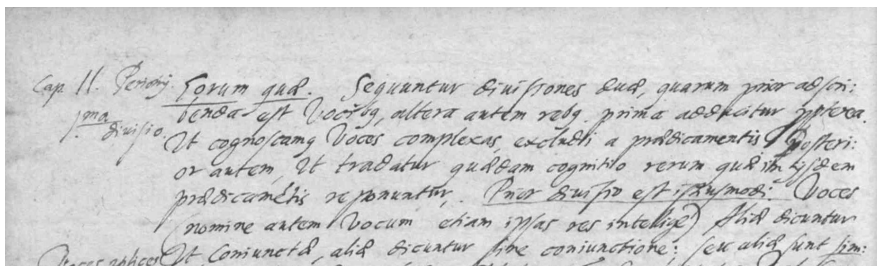 Cap. II. Periochę.
1ma divisio.
Eorum quæ. Sequuntur divisiones duæ, quarum prior adscri-
benda est Vocibq, altera autem rebq. prima adducitur propterea
Ut cognoscamq Voces complexas, excludi a prædicamentis Posteri-
or autem, Ut tradatur quædam cognitio rerum quæ in ijsdem
prædicamētis reponuntur. Prior divisio est istiusmodi. Voces
(nomine autem Vocum etiam ipsas res intellige) Aliæ dicuntur
Ut Coniunctæ, aliæ dicuntur sine coniunctione; seu aliæ sunt sim: